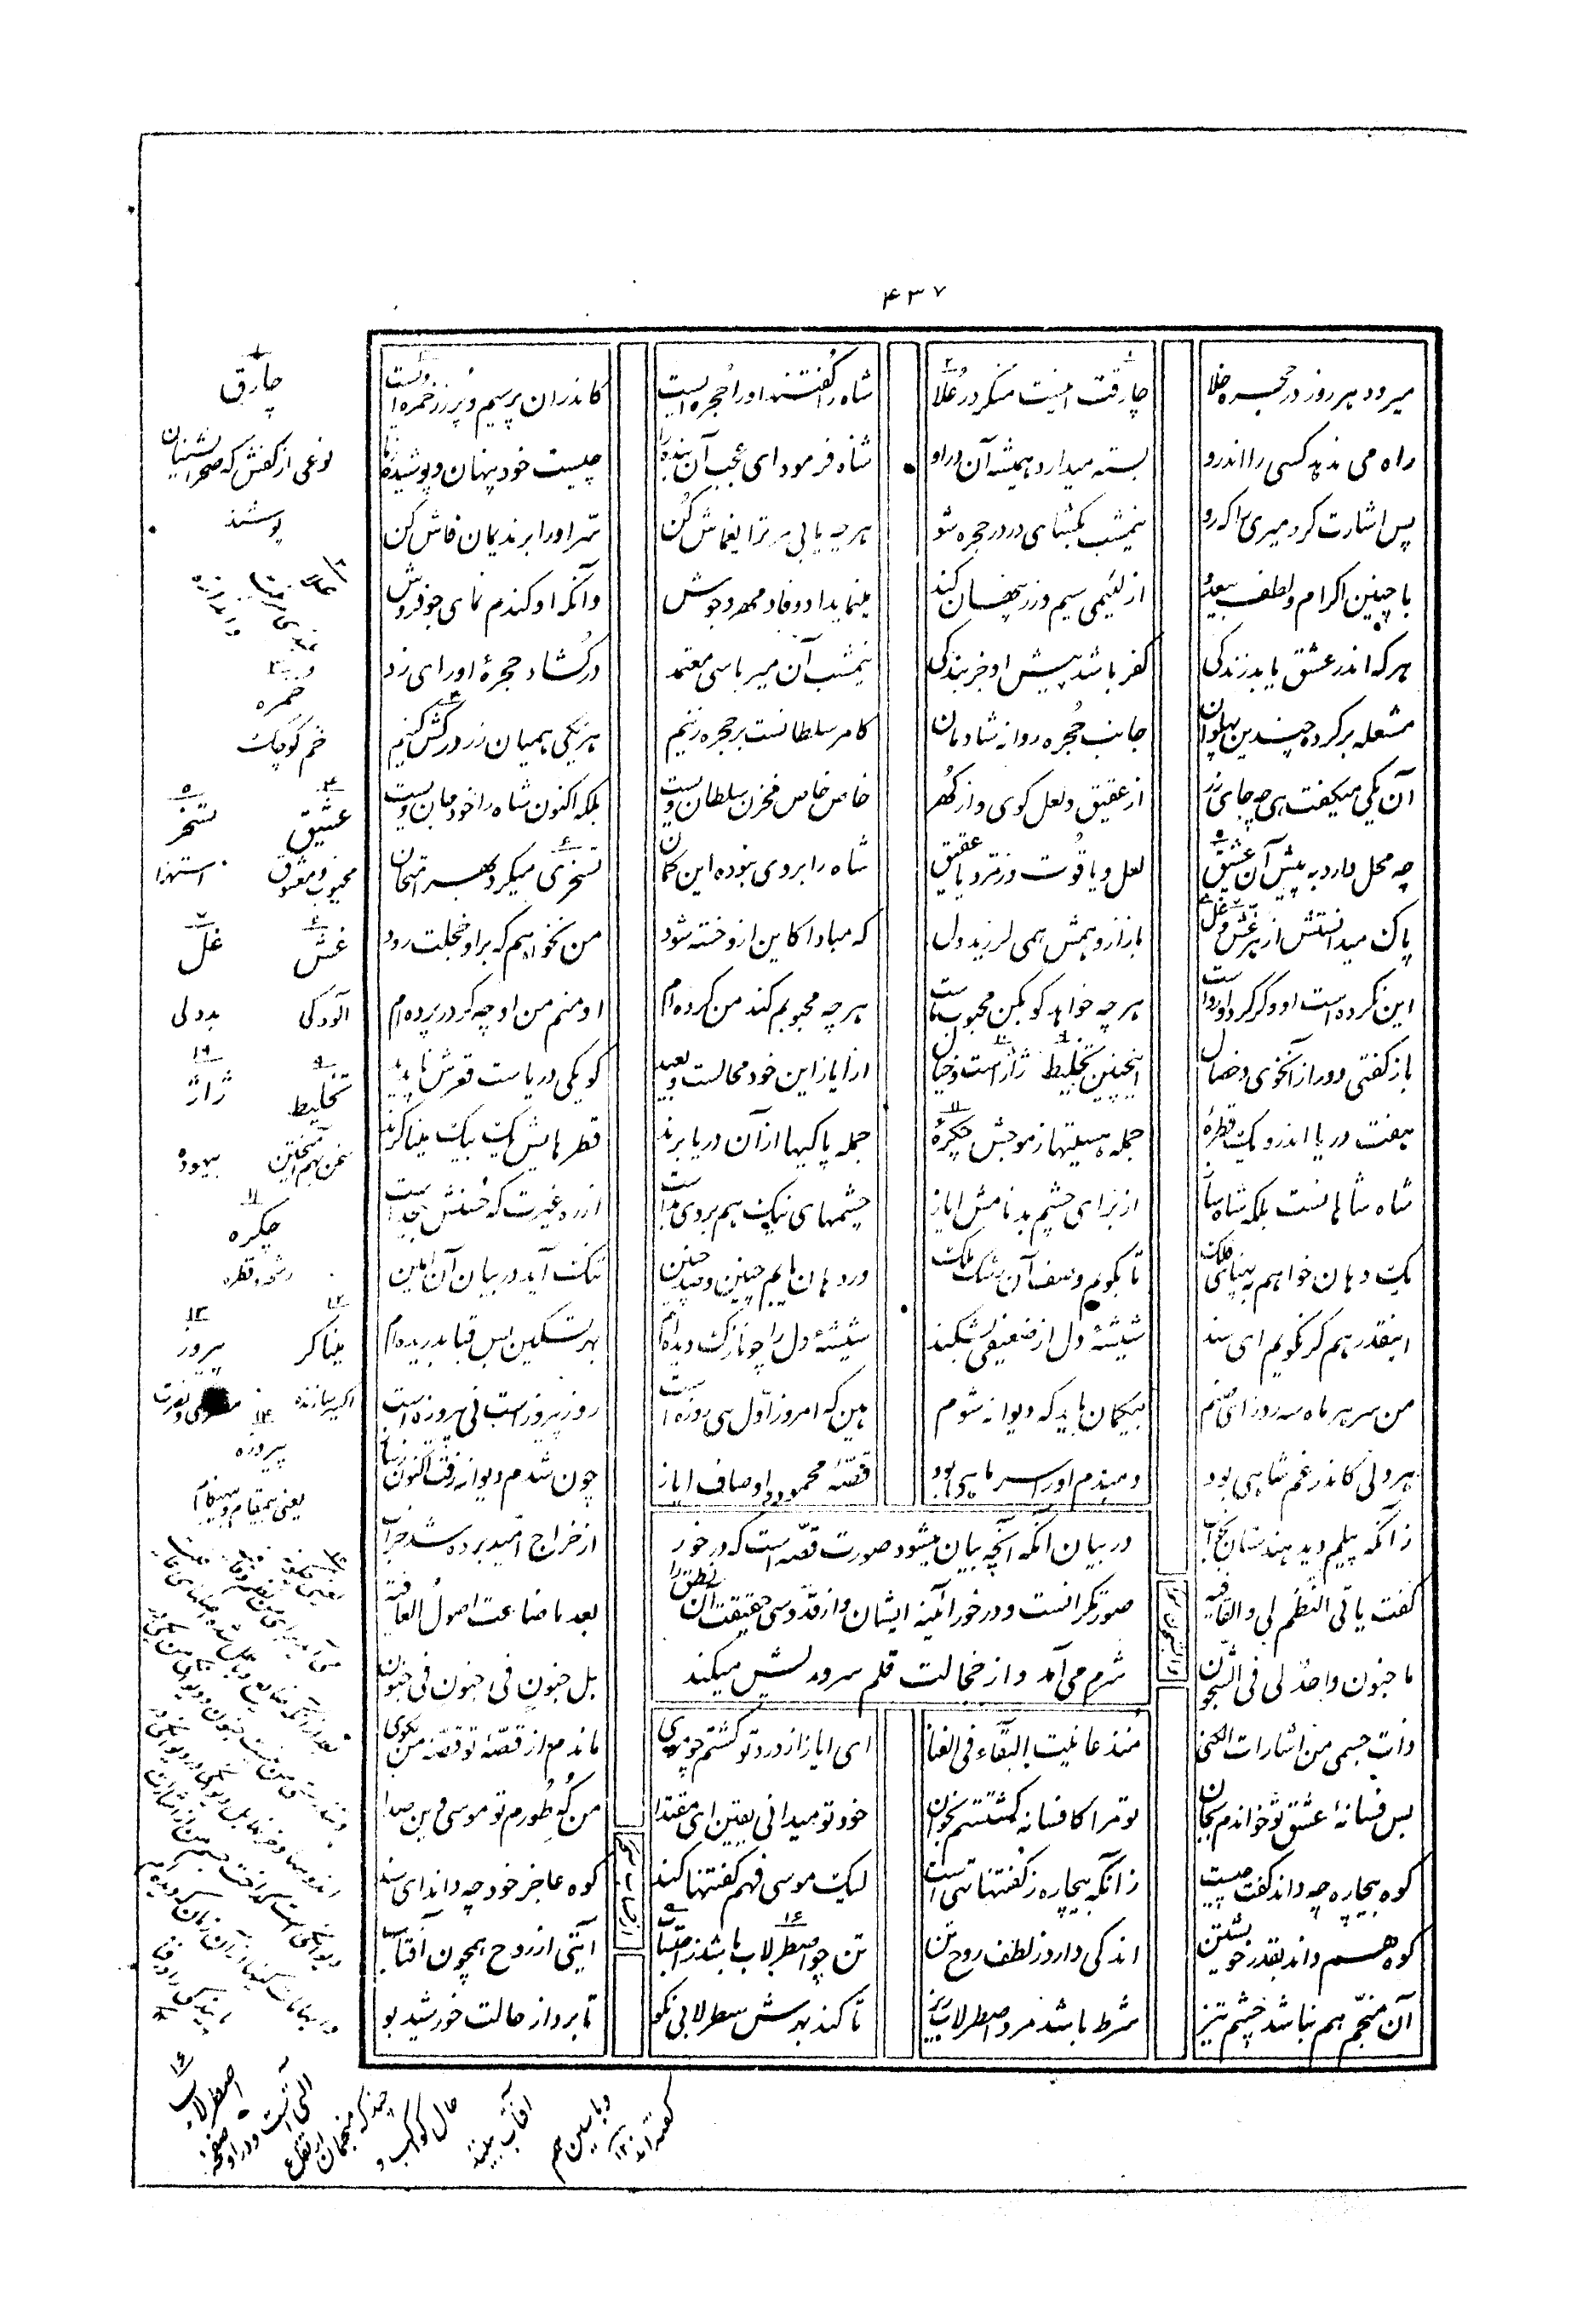 ۴۳۷
میرود هر روز در حجره خلا چارقت اینست منگر در عُلا شاه را گفتند او را حجره ایست کاندران پر سیم و پر زر خمره ایست
راه می ندهد کسی را اندرو بسته میدارد همیشه آن در او شاه فرمود ای عجب آن بنده را چیست خود پنهان و پوشیده ز ما
پس اشارت کرد میری را که رو نیمشب بگشای در در حجره شو هر چه یابی مر ترا یغماش کن سرّ او را بر ندیمان فاش کن
با چنین اکرام و لطف بیعدد از لئیمی سیم و زر پنهان کند مینماید او وفا و مهر و جوش وانگه او گندم نمای جو فروش
هر که اندر عشق یابد زندگی کفر باشد پیش او جز بندگی نیمشب آن میر با سی معتمد در گشاد حجرهٔ او رای زد
مشعله بر کرده چندین پهلوان جانب حجره روانه شادمان کامر سلطانست بر حجره زنیم هر یکی همیان زر در کش کنیم
آن یکی میگفت هی چه جای زر از عقیق و لعل گوی و از گهر خاص خاص مخزن سلطان ویست بلکه اکنون شاه را خود جان ویست
چه محل دارد به پیش آن عشیق لعل و یاقوت و زمرد یا عقیق شاه را بر وی نبوده این گمان تسخری میکرد بهر امتحان
پاک میدانستش از هر غش و غل باز از وهمش همی لرزید دل که مبادا کاین ازو خسته شود من نخواهم که برو خجلت رود
این نکرده است او و گر کرد او رواست هر چه خواهد گو بکن محبوب ماست هر چه محبوبم کند من کرده ام او منم من او چه گر در پرده ام
باز گفتی دور از آنخوی و خصال اینچنین تخلیط ژاژ است و خیال از ایاز این خود محالست و بعید کو یکی دریاست قعرش ناپدید
هفت دریا اندرو یک قطرهٔ جمله هستیها ز موجش چکرهٔ جمله پاکیها از آن دریا برند قطرهایش یک بیک میناگرند
شاه شاهانست بلکه شاه ساز از برای چشم بد نامش ایاز چشمهای نیک هم بر وی بد است از ره غیرت که حسنش بیحد است
یک دهان خواهم به پهنای فلک تا بگویم وصف آن رشک ملک ور دهان یابم چنین و صد چنین تنگ آید در بیان آن امین
اینقدر هم گر نگویم ای سند شیشهٔ دل از ضعیفی بشکند شیشهٔ دل را چو نازک دیده ام بهر تسکین بس قبا بدریده ام
من سر هر ماه سه روز ای صنم بیگمان باید که دیوانه شوم هین که امروز اول سی روزه است روز پیروز است نی پیروزه است
هر دلی کاندر غم شاهی بود دمبدم او را سر ماهی بود قصّهٔ محمود و اوصاف ایاز چون شدم دیوانه رفت اکنون ز ساز
در بیان آنکه آنچه بیان میشود صورت قصّه است که در خور
صورتگرانست و در خور آئینه ایشان و از قدّوسی حقیقت آن نطق را
شرم می آمد و از خجالت قلم سر و ریش میکند
زانکه پیلم دید هندستان بخواب از خراج امّید بر ده شد خراب
کیف یاتی النظم لی والقافیه بعد ما ضاعت اصول العافیه
ما جنون واحد لی فی الشجون بل جنون فی جنون فی جنون
ذاب جسمی من اشارات الکنی منذ عاینت البقاء فی الفنا ای ایاز از درد تو گشتم چو موی ماندم از قصّه تو قصّه من بگوی
بس فسانهٔ عشق تو خواندم بجان تو مرا کافسانه گشتستم بخوان خود تو میدانی یقین ای مقتدا من کُهِ طورم تو موسی وین صدا
کوه بیچاره چه داند گفت چیست زانکه بیچاره ز گفتنها تهی است لیک موسی فهم گفتنها کند کوه عاجز خود چه داند ای سند
کوه هم داند بقدر خویشتن اندکی دارد ز لطف روح تن تن چو اصطرلاب باشد ز احتساب آیتی از روح همچون آفتاب
آن منجّم هم نباشد چشم تیز شرط باشد مرد اصطرلاب ریز تا کند بهرش سطرلابی نکو تا برد از حالت خورشید بو
چارق
نوعی از کفش که صحرانشینان
پوشند
خمره
خم کوچک
عشیق
محبوب و معشوق
تسخر
استهزا
غش
آلودگی
غل
بددلی
تخلیط
سخن بهم آمیختن
ژاژ
بیهوده
چکره
رشحه و قطره
میناگر
اکسیر سازنده
پیروز
پیروزه
اصطرلاب